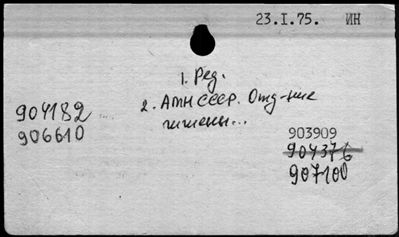 23.I.75. ИН
1. Ред.
2. АМН СССР. Отд-ние
гигиены...
904182
906610
903909
904376
907100